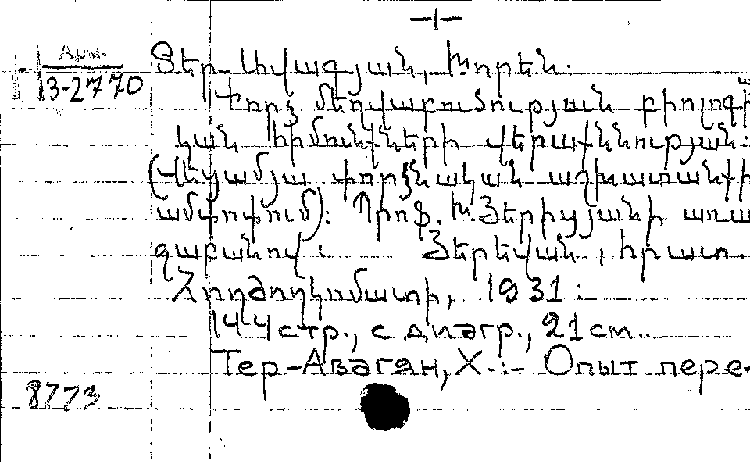 -1-
Арм.
3-2770
Տեր-Ավագյան, Խորեն.
Փորձ մեղվաբուծության բիոլոգի
կան հիմունքների վերաքննության:
(Վեցամյա փորձնական աշխատանքի
ամփոփում): Պրոֆ. Խ. Յերիցյանի առա
ջաբանով: Յերեվան, հրատ.
Հողժողկոմատի, 1931:
144 стр., с диагр., 21 см.
Тер-Аваган, Х.:- Опыт пере-
8773